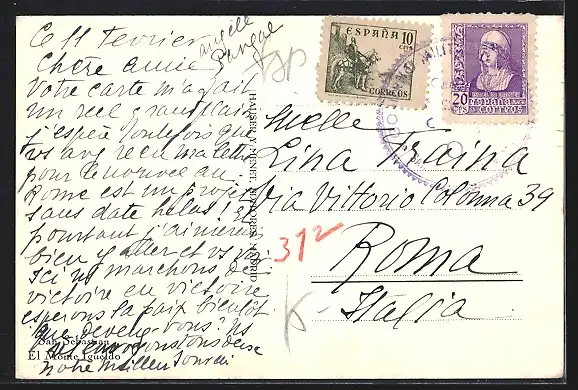 Ce 11 Fevrier
Chère amie
Votre carte m'a fait
un réel grand plaisir
j'espère toutefois que
vs avez reçu ma lettre
pour le nouvel an
Rome est un projet
sans date helas! Et
pourtant j'aimerais
bien y aller et vs voir
Ici ns marchons de
victoire en victoire
esperons la paix bientôt
Que devenez vous? Ns
notre meilleur souvenir
San Sebastián
El Monte Igueldo
HAUSER Y MENET. MADRID
ESPAÑA
10
CTS
CORREOS
20
CTS
ESPAÑA
CORREOS
MILITAR
Melle
Lina Traina
Via Vittorio Colonna 39
Roma
Italia
312